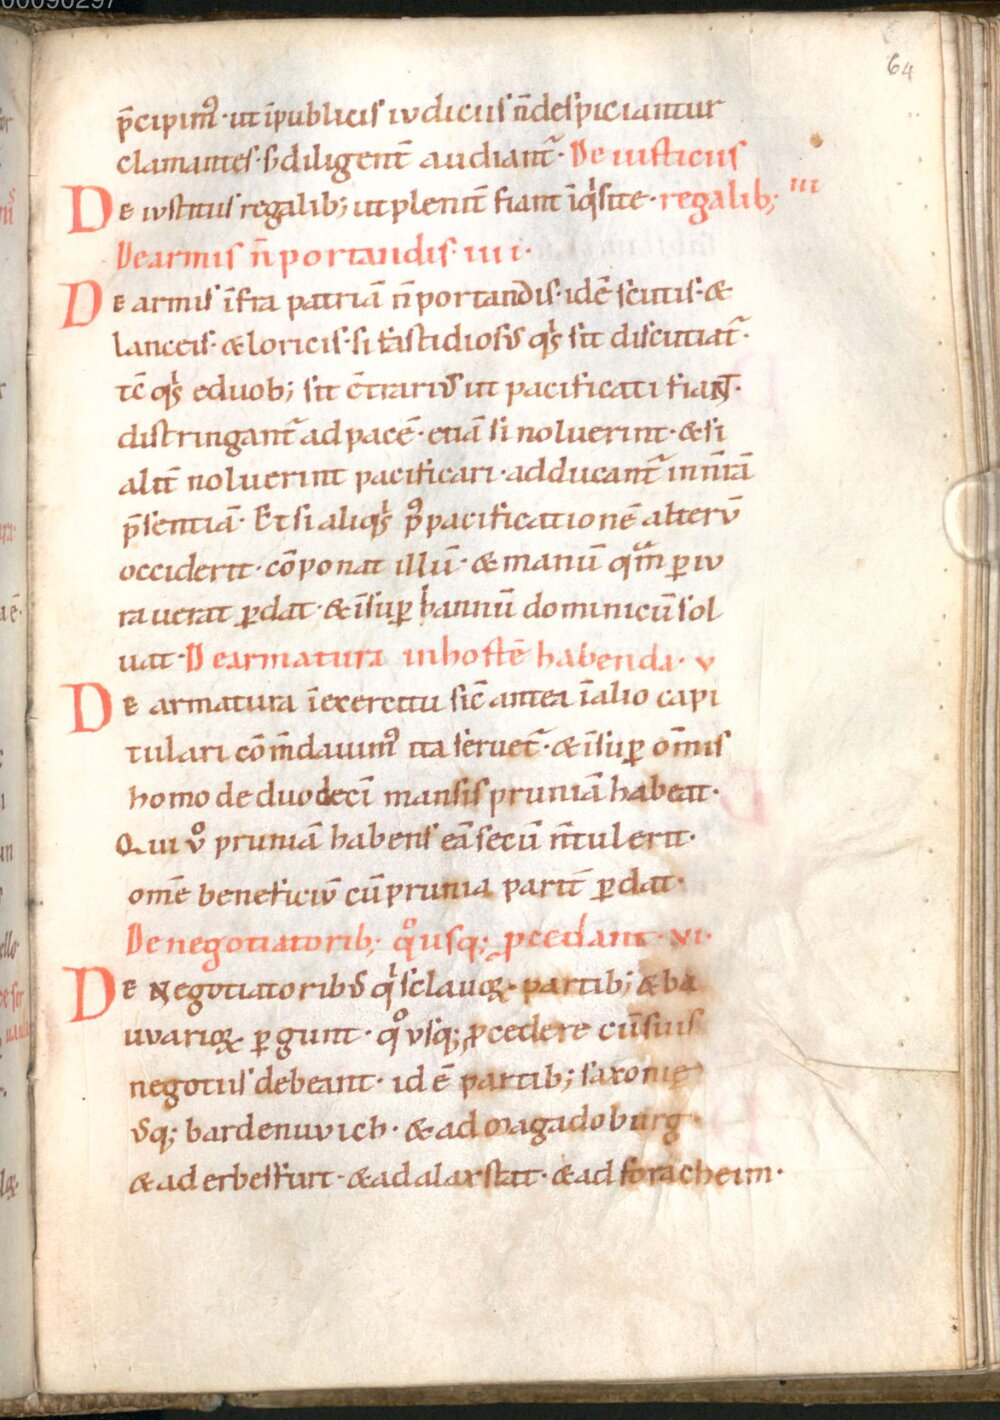 64
p̄cipim᷒· ut īpublicis iudiciis n̄despiciantur
clamantes· s; diligent̄ audiant᷑· De iusticiis
De iustitiis regalib; ut pleniꞇ̄ fiant īqͥsite· regalib; iii
De armis n̄ portandis· iiii·
De armis īfra patriā n̄ portandis· id ē scutis· &
lanceis· & loricis· si fastidiosus qͥs sit discutiat᷑·
tc̄ qͥs e duob; sit c̄trarius ut pacificati fiant·
distringant᷑ ad pacē· etiā si noluerint· & si
alit̄ noluerint pacificari· adducant᷑ in nr̄ā
p̄sentiā· Et si aliqͥs p᷒ pacificationē alterū
occiderit· cōponat illū· & manū qͣm ꝑiu
rauerat ꝑdat· & īsuꝑ bannū dominicū sol
uat· De armatura in hostē habenda· v
De armatura ī exercitu sic̄ antea ī alio capi
tulari cōm̄dauim᷒ ita seruet᷑· & īsuꝑ om̄is
homo de duodecī mansis pruniā habeat·
Qui ū pruniā habens eā secū n̄ tulerit·
om̄e beneficiū cū prunia parit̄ ꝑdat·
De negotiatorib; qͦusq; ꝓcedant· vi·
De negotiatoribus qͥ sclauoꝝ· partib; & ba
uuarioꝝ ꝑgunt· qͦ usq; ꝓcedere cū suis
negotiis debeant· id ē partib; saxonię
usq; bardenuuich· & ad magadoburg·
& ad erbesfurt· & ad alaxstat· & ad foracheim·